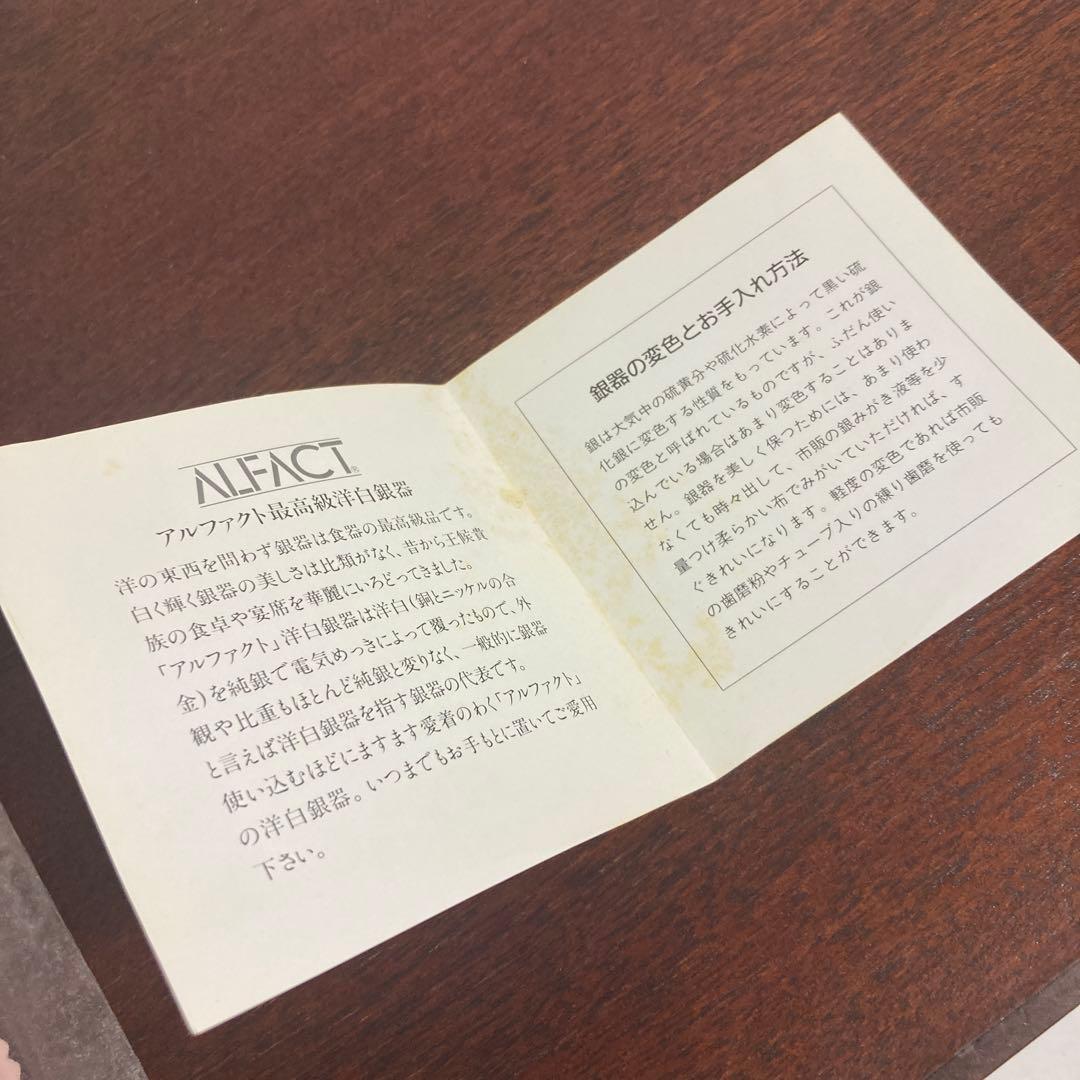 ALFACT®
アルファクト最高級洋白銀器
洋の東西を問わず銀器は食器の最高級品です。
白く輝く銀器の美しさは比類がなく、昔から王候貴
族の食卓や宴席を華麗にいろどってきました。
「アルファクト」洋白銀器は洋白(銅とニッケルの合
金)を純銀で電気めっきによって覆ったもので、外
観や比重もほとんど純銀と変りなく、一般的に銀器
と言えば洋白銀器を指す銀器の代表です。
使い込むほどにますます愛着のわく「アルファクト」
の洋白銀器。いつまでもお手もとに置いてご愛用
下さい。
銀器の変色とお手入れ方法
銀は大気中の硫黄分や硫化水素によって黒い硫
化銀に変色する性質をもっています。これが銀
の変色と呼ばれているものですが、ふだん使い
込んでいる場合はあまり変色することはありま
せん。銀器を美しく保つためには、あまり使わ
なくても時々出して、市販の銀みがき液等を少
量つけ柔らかい布でみがいていただければ、す
ぐきれいになります。軽度の変色であれば市販
の歯磨粉やチューブ入りの練り歯磨を使っても
きれいにすることができます。